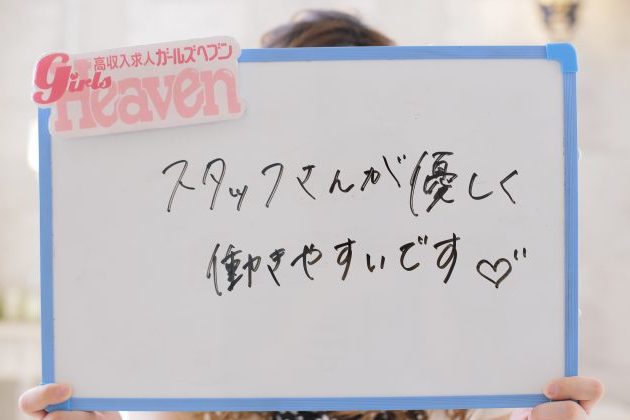 高収入求人ガールズヘブン
Girls
Heaven
スタッフさんが優しく
働きやすいです♡